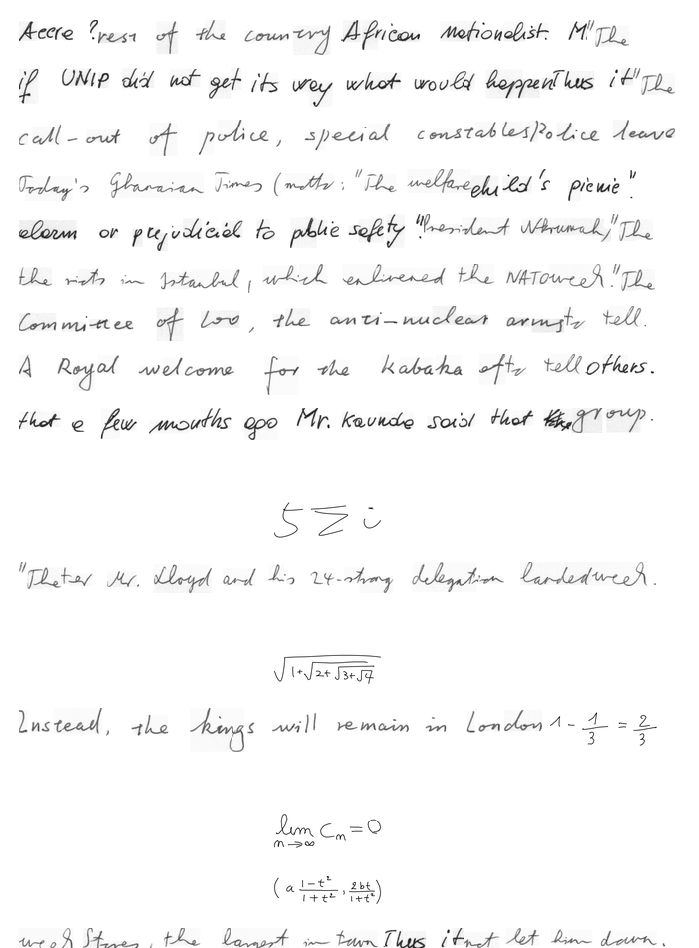 Accra ?rest of the country African Nationalist. M" The
if UNIP did not get its way what would happenThus it" The
call-out of police, special constablesPolice leave
Today's Ghanaian Times (motto: "The welfarechild's picnic".
alarm or prejudicial to public safety "President Nkrumah," The
the riots in Istanbul, which enlivened the NATOweek." The
Committee of 100, the anti-nuclear arms to tell.
A Royal welcome for the Kabaka after tell others.
that a few months ago Mr. Kaunda said that group.
5 Σ i
"The ter Mr. Lloyd and his 24-strong delegation landedweek.
√(1+√(2+√(3+√4)))
Instead, the kings will remain in London 1 - 1/3 = 2/3
lim_{n→∞} C_n = 0
(a (1-t²)/(1+t²), 2bt/(1+t²))
week Stores, the largest in town Thus it not let him down.